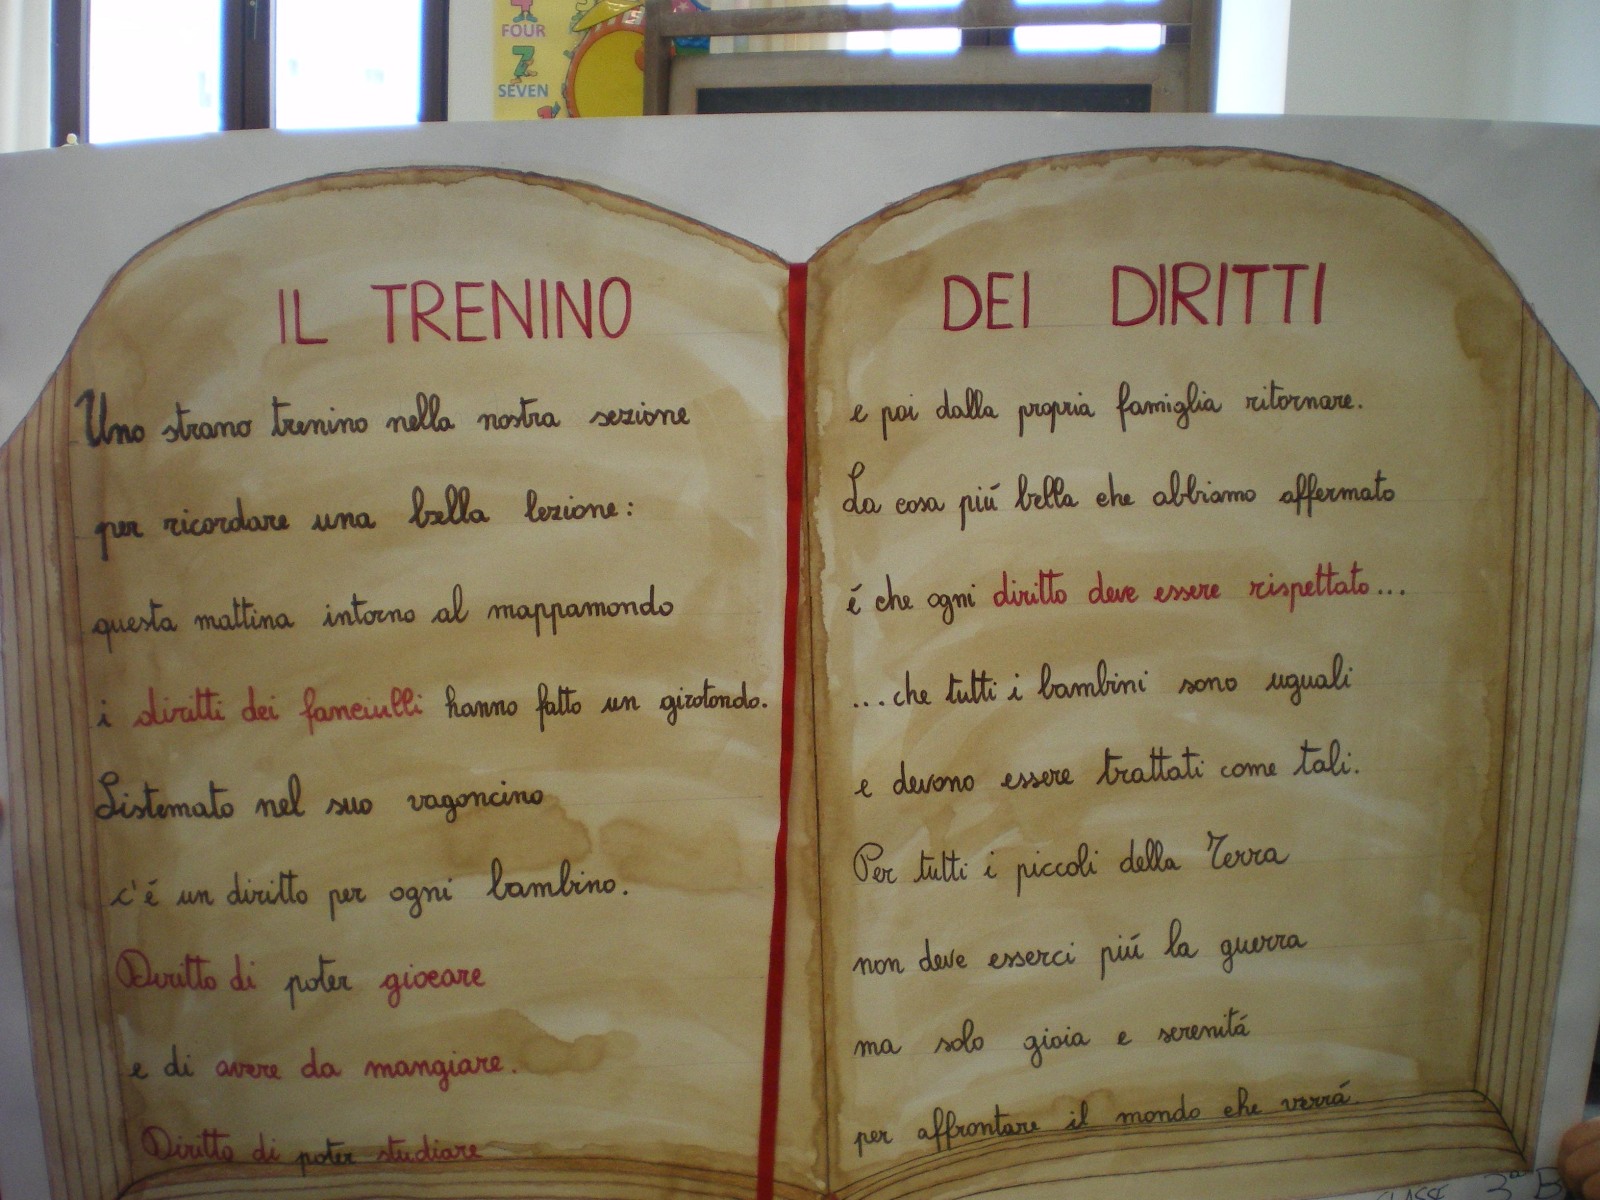 FOUR
SEVEN
IL TRENINO
Uno strano trenino nella nostra sezione
per ricordare una bella lezione:
questa mattina intorno al mappamondo
i diritti dei fanciulli hanno fatto un girotondo.
Sistemato nel suo vagoncino
c'é un diritto per ogni bambino.
Diritto di poter giocare
e di avere da mangiare.
Diritto di poter studiare
DEI DIRITTI
e poi dalla propria famiglia ritornare.
La cosa piú bella che abbiamo affermato
é che ogni diritto deve essere rispettato...
...che tutti i bambini sono uguali
e devono essere trattati come tali.
Per tutti i piccoli della Terra
non deve esserci piú la guerra
ma solo gioia e serenitá
per affrontare il mondo che verrá.
CLASSE 3ª B